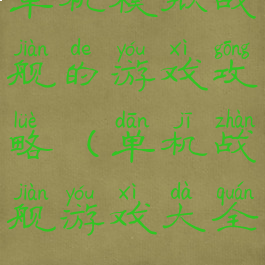 单机模拟战
jiàn de yóu xì gōng
舰的游戏攻
lüè dān jī zhàn
略（单机战
jiàn yóu xì dà quán
舰游戏大全